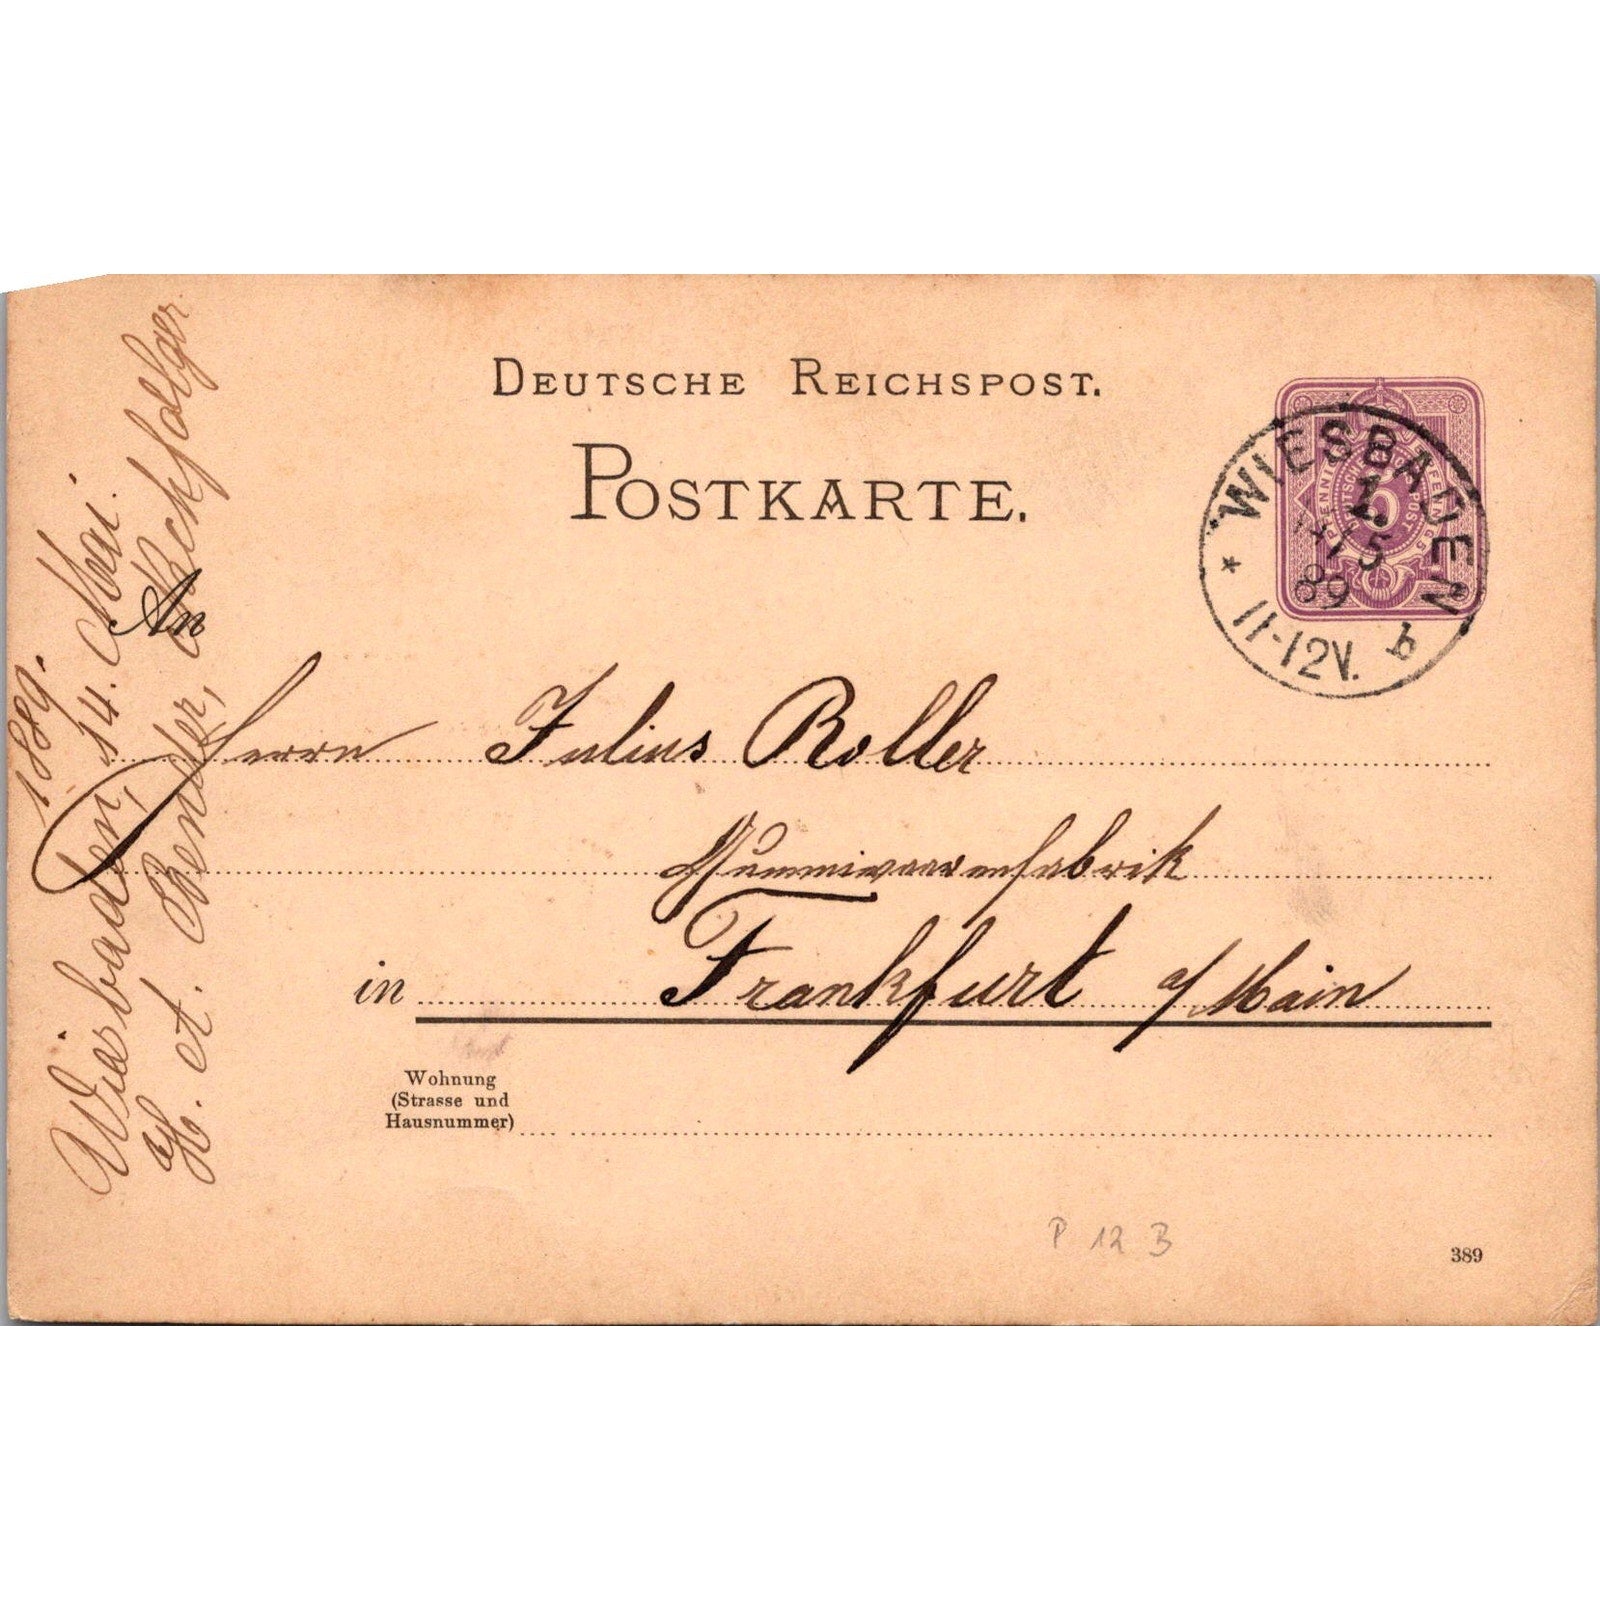 DEUTSCHE REICHSPOST.
POSTKARTE.
An
Herrn Julius Roller
Gummiwaarenfabrik
in Frankfurt a/Main
Wohnung
(Strasse und
Hausnummer)
P 12 B
389
WIESBADEN
1.
14/5
89
11-12V.
* b
5 PFENNIG 5 PFENNIG
DEUTSCHE REICHSPOST
5
1889.
Wiesbaden, 14. Mai.
A. Bender, Nachfolger